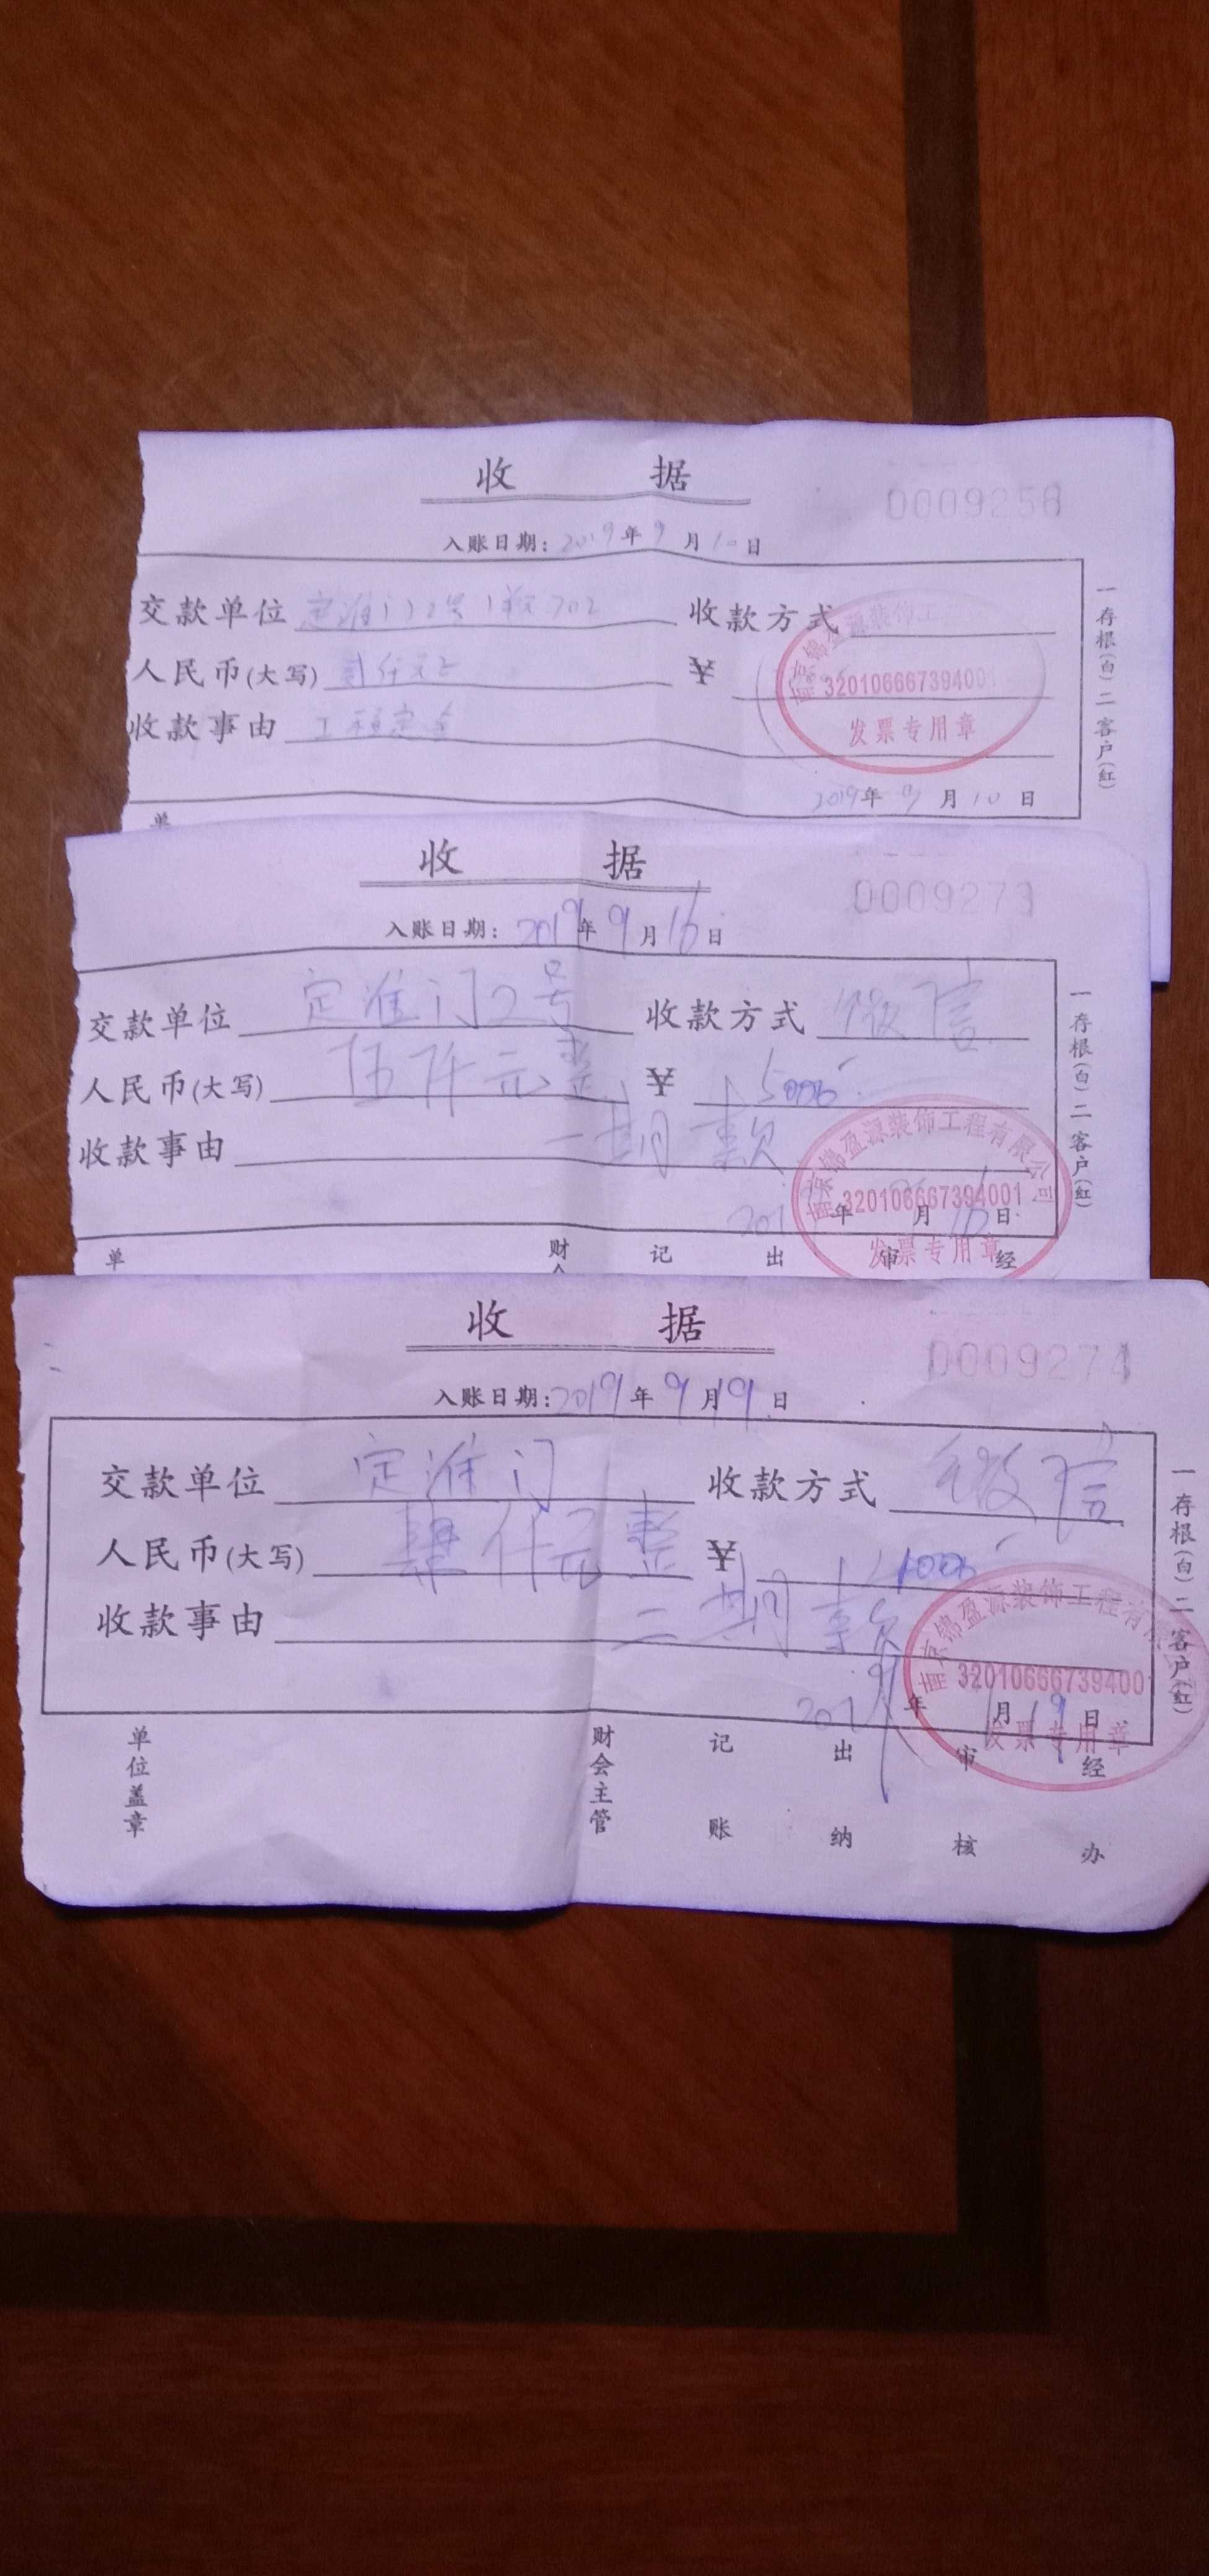 收 据
0009256
入账日期：2019年9月10日
交款单位 定淮门2号1单元702 收款方式
人民币(大写) 贰仟元正 ¥
收款事由 工程定金
南京锦盈源装饰工
320106667394001
发票专用章
2019年9月10日
一存根(白)二客户(红)
单
收 据
0009273
入账日期：2019年9月16日
交款单位 定淮门2号 收款方式 微信
人民币(大写) 伍仟元整 ¥ 5000
收款事由 一期款
南京锦盈源装饰工程有限公司
320106667394001
发票专用章
年 月16日
一存根(白)二客户(红)
单 财会 记 出 审 经
收 据
0009274
入账日期：2019年9月19日
交款单位 定淮门 收款方式 微信
人民币(大写) 肆仟元整 ¥ 4000
收款事由 二期款
南京锦盈源装饰工程有限
32010666739400
发票专用章
2019年9月19日
一存根(白)二客户(红)
单位盖章 财会主管 记账 出纳 审核 经办